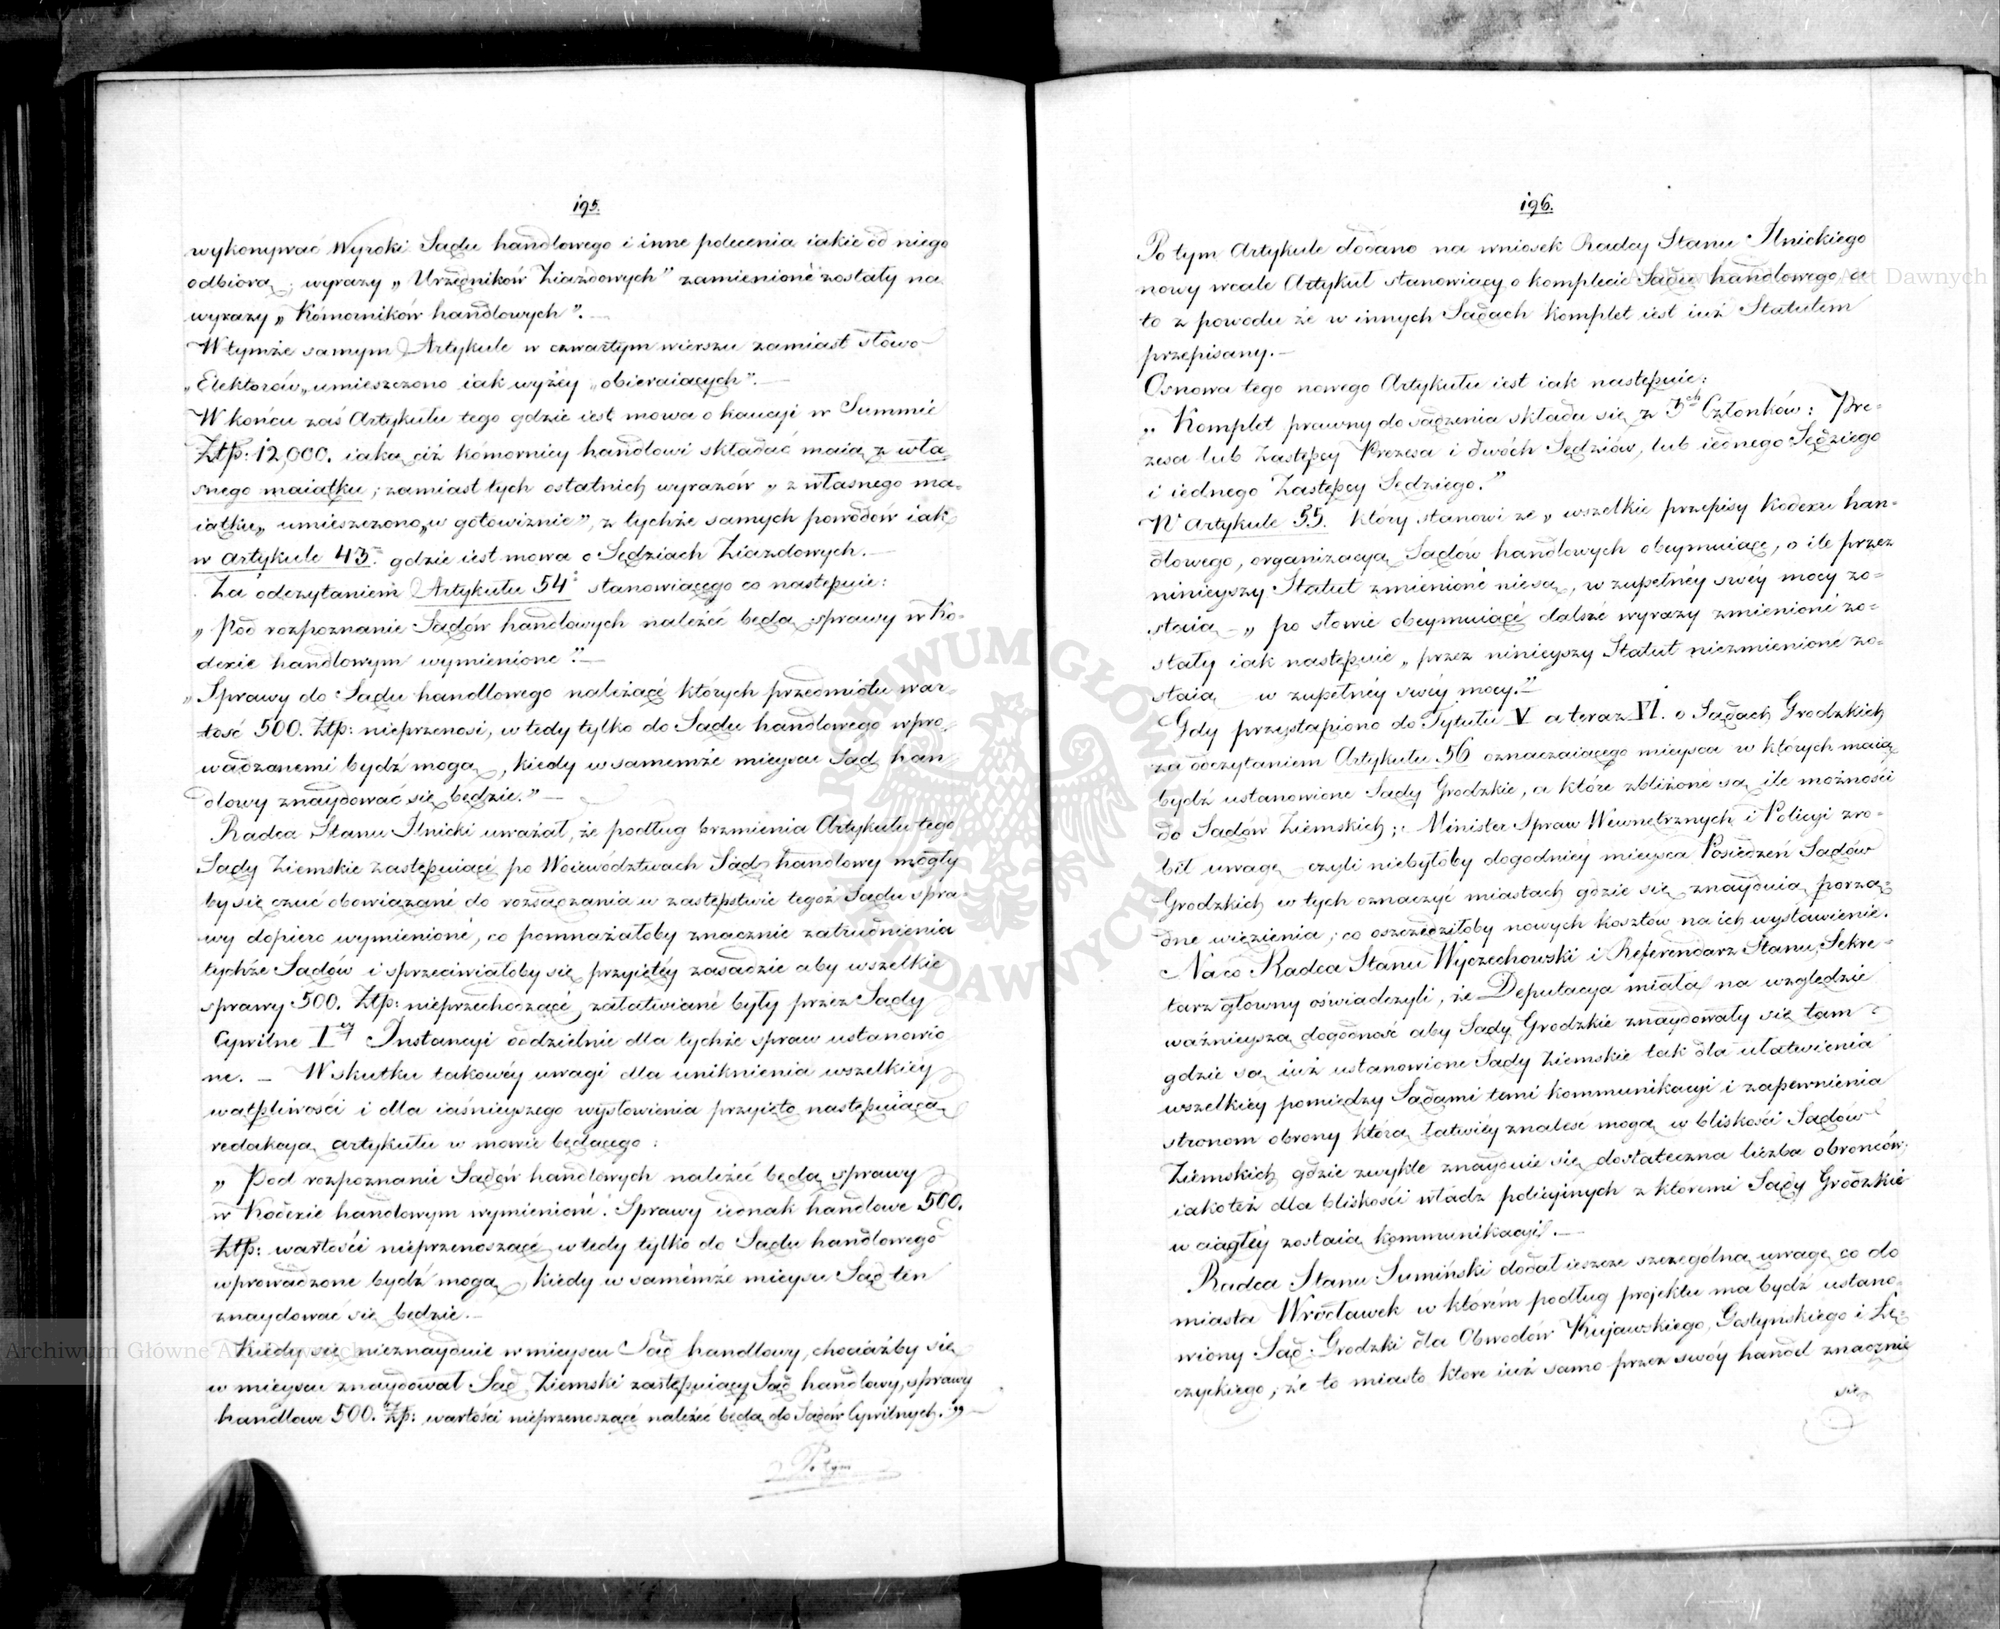 195.
wykonywać Wyroki Sądu handlowego i inne polecenia iakie od niego
odbiorą; wyrazy „Urzędników Ziazdowych” zamienione zostały na
wyrazy „Komorników handlowych”. —
W tymże samym Artykule w czwartym wierszu zamiast słowo
„Elektorów„ umieszczono iak wyżéy „obieraiących”. —
W końcu zaś Artykułu tego gdzie iest mowa o kaucyi w Summie
Złtp: 12,000. iaką ciż komornicy handlowi składać maią z wła
snego maiątku; zamiast tych ostatnich wyrazów „z własnego ma-
iątku„ umieszczono „w gotowiznie”, z tychże samych powodów iak
w artykule 43. gdzie iest mowa o Sędziach Ziazdowych. —
Za odczytaniem Artykułu 54° stanowiącego co następuie:
„Pod rozpoznanie Sądów handlowych należéć będą sprawy w Ko-
dexie handlowym wymienione”. —
„Sprawy do Sądu handlowego należącé których przedmiotu war-
tość 500. Złtp: nieprzenosi, w tedy tylko do Sądu handlowego wpro-
wadzonemi bydź mogą, kiedy w samemże mieyscu Sąd han
dlowy znaydować się będzie.” —
Radca Stanu Ilnicki uważał, że podług brzmienia Artykułu tego
Sądy Ziemskie zastępuiącé po Woiewództwach Sąd handlowy mogły
by się czuć obowiązané do rozsądzania w zastępstwie tegoż Sądu spra-
wy dopiero wymienioné, co pomnażałoby znacznie zatrudnienia
tychże Sądów i sprzeciwiałoby się przyiętéy zasadzie aby wszelkie
sprawy 500. Złtp: nieprzechodzącé, załatwiané były przez Sądy
Cywilne Iéy Instancyi oddzielnie dla tychże spraw ustanowio
ne. — W skutku takowéy uwagi dla uniknienia wszelkiéy
wątpliwości i dla iaśnieyszego wysłowienia przyięto następuiącą
redakcyą artykułu w mowie będącego:
„Pod rozpoznanié Sądów handlowych należéć będą sprawy
w Kodexie handlowym wymienioné. Sprawy iednak handlowe 500.
Złtp: wartości nieprzenoszącé w tedy tylko do Sądu handlowego
wprowadzone bydź mogą, kiedy w samémże mieyscu Sąd ten
znaydować się będzie. —
Kiedy się nieznayduie w mieyscu Sąd handlowy, chociażby się
w mieyscu znaydował Sąd Ziemski zastępuiący Sąd handlowy, sprawy
handlowe 500. Złp: wartości nieprzenoszącé należéć będą do Sądów Cywilnych. „ —
Po tym
196.
Po tym Artykule dodano na wniosek Radcy Stanu Ilnickiego
nowy wcale Artykuł stanowiący o komplecie Sądu handlowego a
to z powodu że w innych Sądach komplet iest iuż Statutem
przepisany. —
Osnowa tego nowego Artykułu iest iak następuie:
„Komplet prawny do sądzenia składa się z 3ch Członków: Pre-
zesa lub Zastępcy Prezesa i dwóch Sędziów, lub iednego Sędziego
i iednego Zastępcy Sędziego.”
W Artykule 55. który stanowi że „wszelkie przepisy Kodexu han-
dlowego, organizacyą Sądów handlowych obeymuiące, o ile przez
ninieyszy Statut zmienioné niesą, w zupełnéy swéy mocy zo-
staią — „po słowie obeymuiącé dalsze wyrazy zmienioné zo-
stały iak następuie „przez ninieyszy Statut niezmienioné zo-
staią w zupełnéy swéy mocy.” —
Gdy przystąpiono do Tytułu V a teraz VI. o Sądach Grodzkich
za odczytaniem Artykułu 56 oznaczaiącego mieysca w których maią
bydź ustanowione Sądy Grodzkie, a które zbliżoné są ile możności
do Sądów Ziemskich; Minister Spraw Wewnętrznych i Policyi zro-
bił uwagę czyli niebyłoby dogodniéy mieysca Posiedzeń Sądów
Grodzkich w tych oznaczyć miastach gdzie się znayduią porzą-
dne więzienia; co oszczędziłoby nowych kosztów na ich wystawienie.
Na co Radca Stanu Wyczechowski i Referendarz Stanu, Sekre-
tarz główny oświadczyli, że Deputacya miała na względzie
ważnieyszą dogodność aby Sądy Grodzkie znaydowały się tam
gdzie są iuż ustanowione Sądy Ziemskie tak dla ułatwienia
wszelkiéy pomiędzy Sądami temi kommunikacyi i zapewnienia
stronom obrony którą łatwiéy znaleść mogą w bliskości Sądów
Ziemskich gdzie zwykle znayduie się dostateczna liczba obrońców;
iako też dla bliskości władz policyinych z któremi Sądy Grodzkie
w ciągłéy zostaią kommunikacyi. —
Radca Stanu Sumiński dodał ieszcze szczególną uwagę co do
miasta Wrocławek w którém podług projektu ma bydź ustano-
wiony Sąd Grodzki dla Obwodów Kujawskiego, Gostyńskiego i Łę-
czyckiego; że to miasto które iuż samo przez swóy handel znacznie
się
Archiwum Główne Akt Dawnych
ARCHIWUM GŁÓWNE AKT DAWNYCH